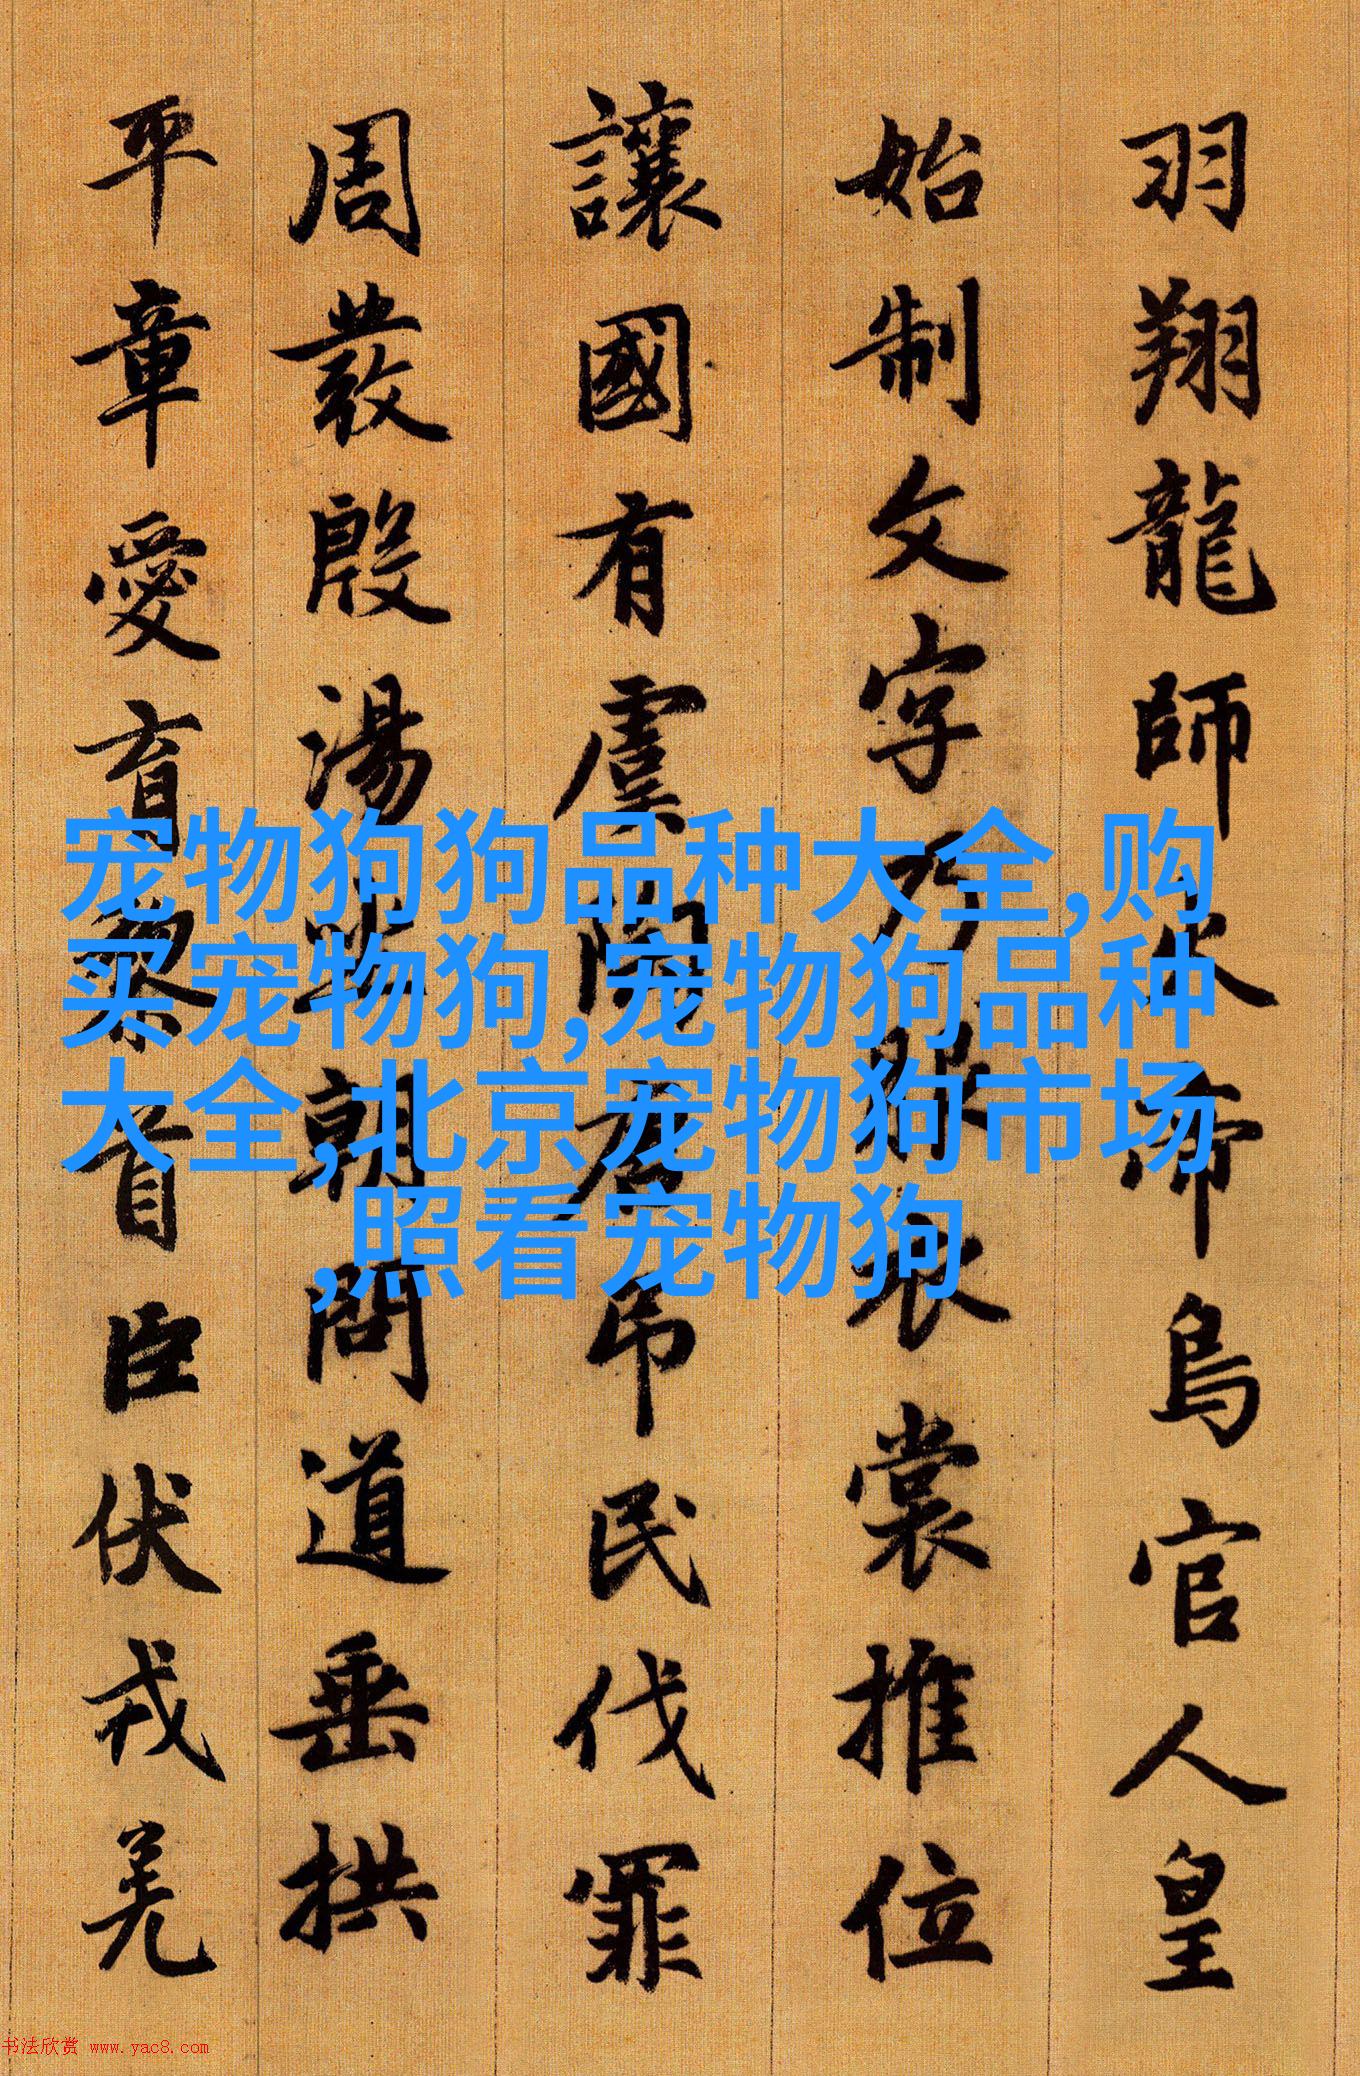 羽翔龍師火帝鳥官人皇
始制文字乃服衣裳推位
讓國有虞陶唐吊民伐罪
周發殷湯坐朝問道垂拱
平章愛育黎首臣伏戎羌
宠物狗狗品种大全,购
买宠物狗,宠物狗品种
大全,北京宠物狗市场
,照看宠物狗
书法欣赏 www.yac8.com